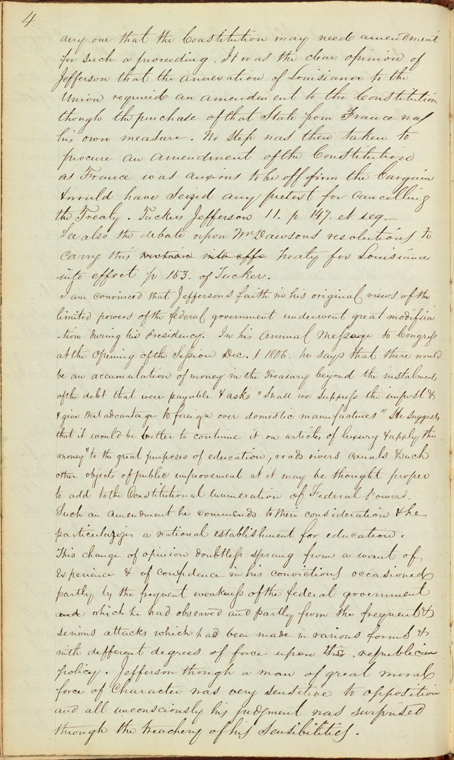 4
any one that the Constitution may need amendment
for such a proceeding. It was the clear opinion of
Jefferson that the annexation of Louisiana to the
Union required an amendment to the Constitution
though the purchase of that State from France was
his own measure. No step was then taken to
procure an amendment of the Constitution
as France was anxious to be off from the bargain
& would have seized any pretext for cancelling
the Treaty. Tuckers Jefferson 11. p 147. et seq.
See also the debate upon Mr Dawsons resolutions to
carry this into effe Treaty for Louisiana
into effect p 153. of Tucker.
I am convinced that Jeffersons faith in his original views of the
limited powers of the federal government underwent great modifica
-tion during his Presidency. In his annual Message to Congress
at the opening of the Session Dec. 1806. he says that there would
be an accumulation of money in the Treasury beyond the instalments
of the debt that were payable & asks "Shall we suppress the impost &
& give that advantage to foreign over domestic manufactures" He suggests
that it would be better to continue it on articles of luxury & apply the
money "to the great purposes of education, road rivers canals & such
other objects of public improvement as it may be thought proper
to add to the Constitutional enumeration of Federal Powers.
Such an amendment he commends to their consideration & he
particularizes a national establishment for education.
This change of opinion doubtless sprang from a want of
experience & of confidence in his convictions occasioned
partly by the frequent weakness of the federal government
and which he had observed and partly from the frequent &
serious attacks which had been made in various forms &
with different degrees of force upon this republican
policy. Jefferson though a man of great moral
force of Character was very sensitive to opposition
and all unconsciously his judgment was surprised
through the treachery of his sensibilities.